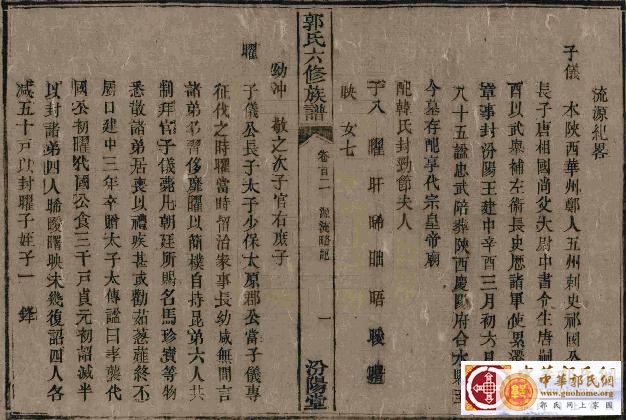 流源紀畧
子儀 本陝西華州鄭人五州刺史祁國公
長子唐相國尚父太尉中書令生唐嗣
酉以武舉補左衛長史歷諸軍使累遷
章事封汾陽王建中辛酉三月初六日
八十五諡忠武陪葬陝西慶陽府合水縣
今墓存配享代宗皇帝廟
配韓氏封勁節夫人
子八 曜 旰 晞 昢 晤 曖 曙
映 女七
郭氏六修族譜
卷首二 源流略記
一
汾陽堂
勁沖 敬之次子官右庶子
曜 子儀公長子太子少保太原郡公當子儀專
征伐之時曜當時留治家事長幼咸無間言
諸弟爭習侈靡曜以簡樸自持昆弟六人共
制拜官子儀薨凡朝廷所賜名馬珍寶等物
悉散諸弟居喪以禮疾甚或勸茹蔥薤終不
入口建中三年卒贈太子太傅諡曰孝襲代
國公初曜代國公食三千戶貞元初詔減半
以封諸弟四人晞曖曙映未幾復詔四人各
減五十戶以封曜子姪子一 鋒
中華郭氏網
www.guohome.org
郭氏網上家園